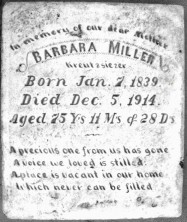 In memory of our dear Mother
BARBARA MILLER
Kreutsiezer
Born Jan. 7, 1839
Died Dec. 5, 1914.
Aged 75 Ys 11 Ms & 28 Ds
A precious one from us has gone
A voice we loved is stilled.
A place is vacant in our home
Which never can be filled